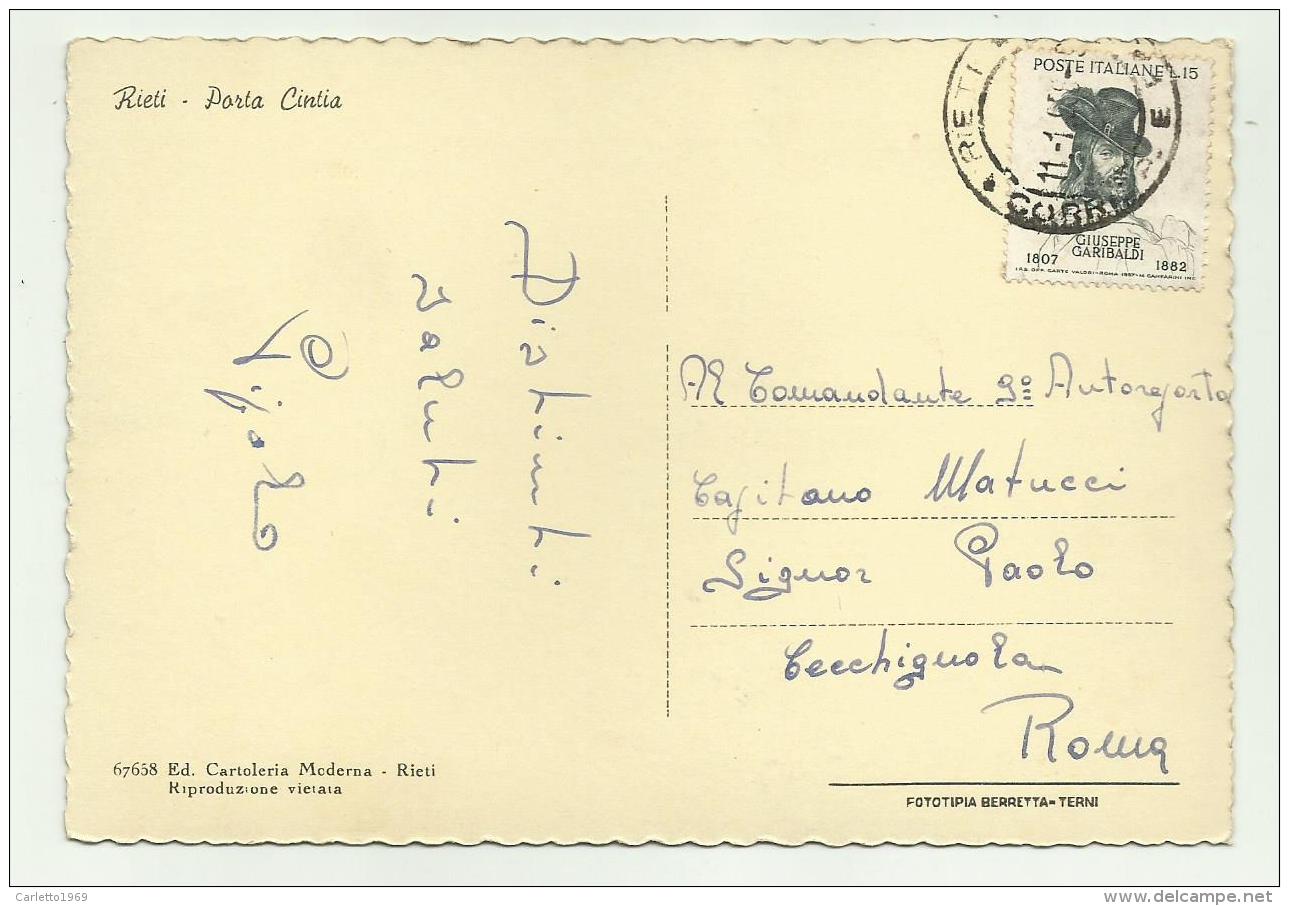 Rieti - Porta Cintia
POSTE ITALIANE L.15
RIETI
11-1
CORRI
GIUSEPPE
GARIBALDI
1807 1882
I.P.S. OFF. CARTE VALORI-ROMA 1957-M. CANFARINI INC.
Distinti
saluti
Al Comandante 9º Autoreparto
Capitano Matucci
Signor Paolo
Cecchignola
Roma
67658 Ed. Cartoleria Moderna - Rieti
Riproduzione vietata
FOTOTIPIA BERRETTA-TERNI
Carletto1969
delcampe.net